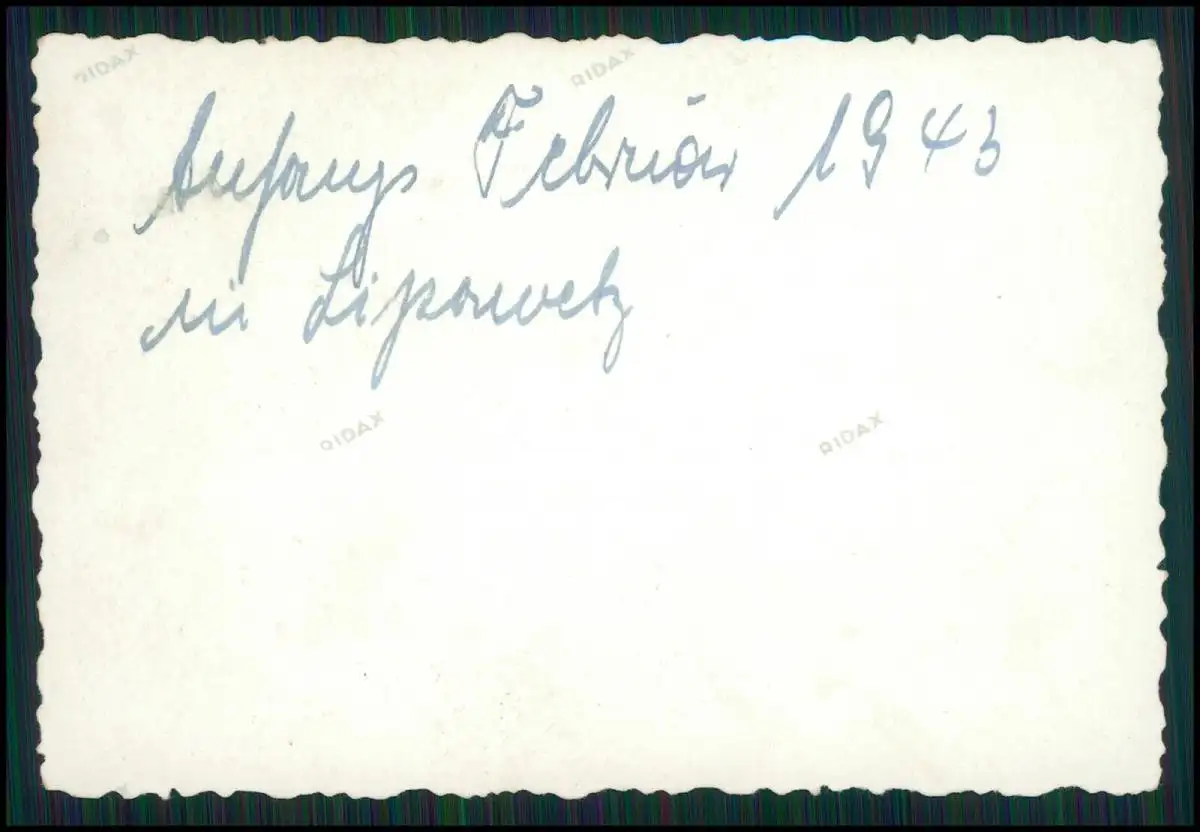 RIDAX RIDAX
Anfangs Februar 1943
in Lipowetz
RIDAX RIDAX